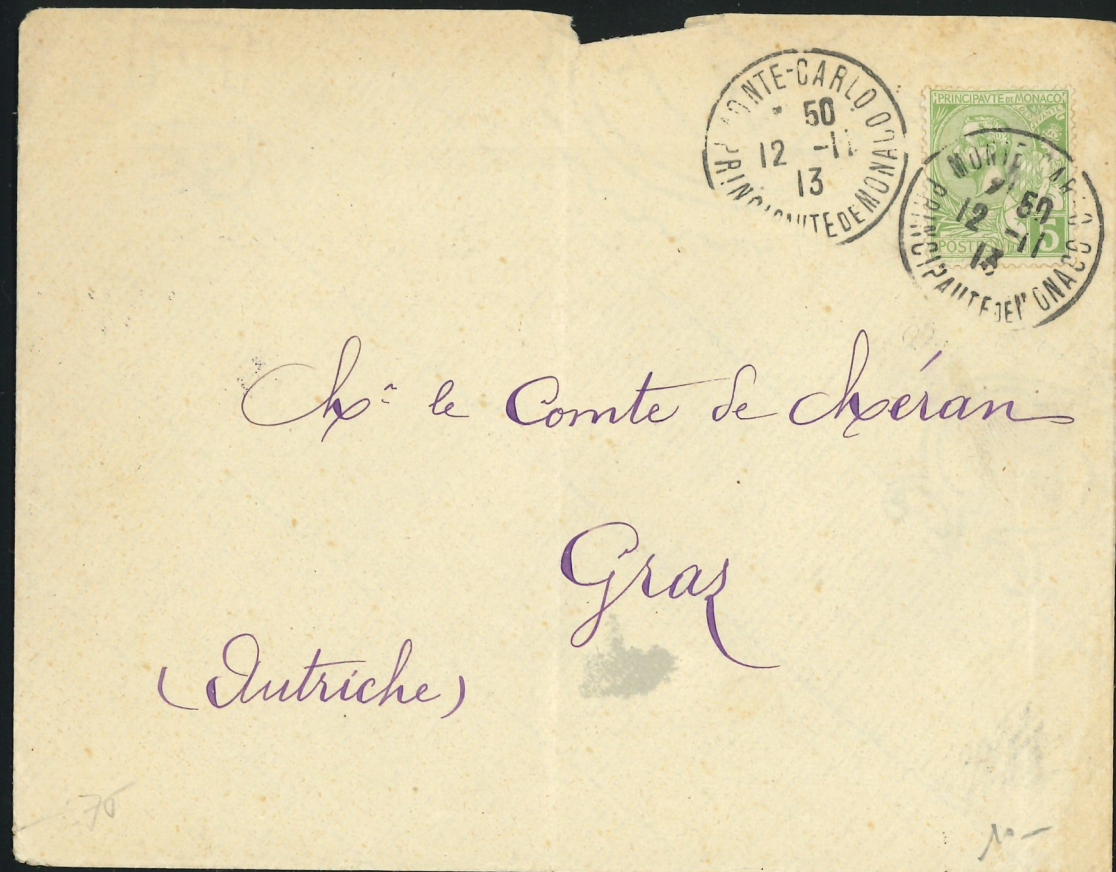 MONTE-CARLO
* 50
12 -11
13
PRINCIPAUTE DE MONACO
PRINCIPAVTE DE MONACO
POSTES
5
MONTE-CARLO
50
12 -11
13
PRINCIPAUTE DE MONACO
Mr le Comte de Méran
Graz
(Autriche)
75
10 -